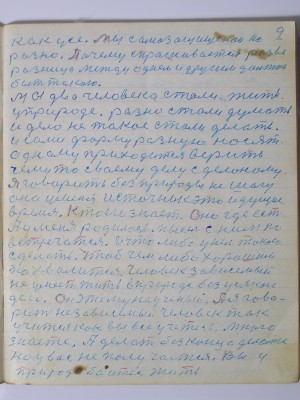 9
как все. Мы самозащищаем по
разно. Почему спрашивается разве
разница между одном и другим должна
быть такою.
Мы два человека стали жить
у природе. разно стали думать
и дело не такое стали делать.
и сами форму разную носят.
одному приходится верить
чему то своему делу сделаному
Я говорить без природы не могу
она у меня источник это идущее
время. Кто ее знает. Оно где есть
Я у меня родилось мысль с ним по
встречатся. и что либо у нем такое
сделать. Чтоб чем либо хорошим
похвалится. Человек зависимый
не умеет жить в природе без всякого
дела. Он этому научный. А я гово-
рит независимый человек так
учится как вы все учитесь. много
знаете. А делать без конца делаете
но у вас не получается. Вы у
природе боитесь жить